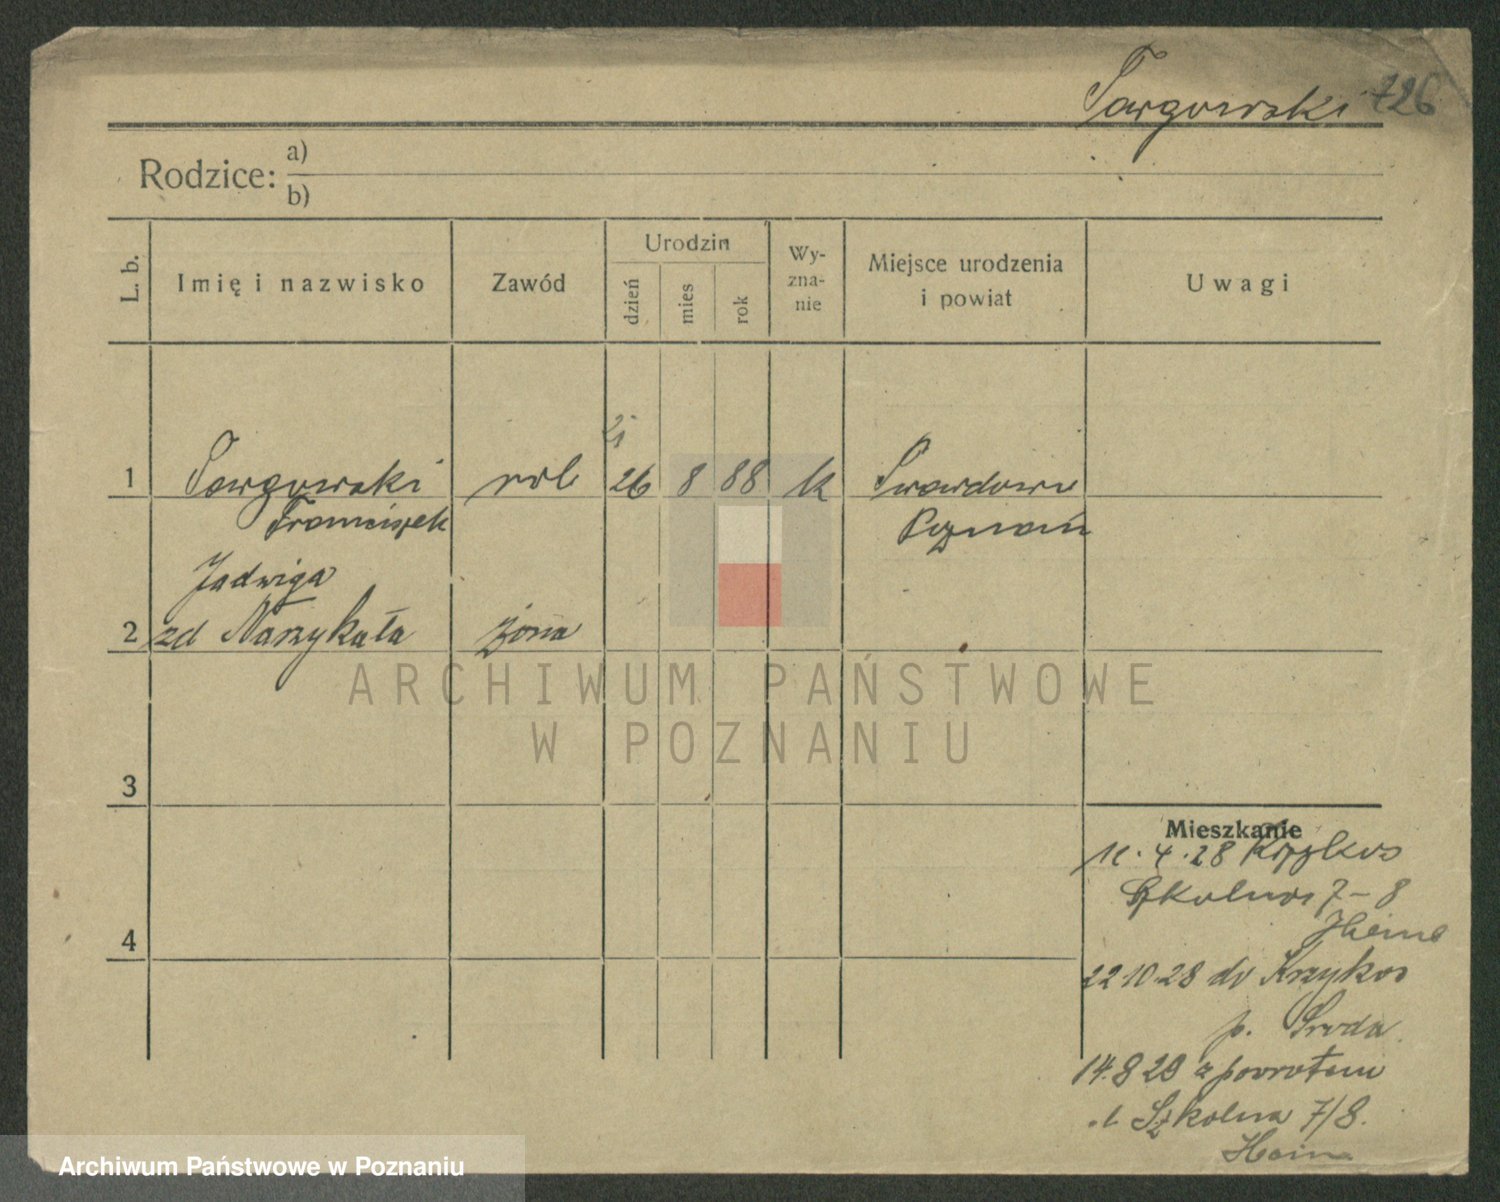 Targowski 726
Rodzice: a)
b)
L. b. Imię i nazwisko Zawód Urodzin dzień mies rok Wy-zna-nie Miejsce urodzenia i powiat Uwagi
21
1 Targowski rol 26 8 88 k Swardowo
Franciszek Poznań
Jadwiga
2 zd Narzykała żona
ARCHIWUM PAŃSTWOWE
W POZNANIU
3
Mieszkanie
11.4.28 Krzykos
Szkolna 7-8
4
Heine
22 10.28 do Krzykos
p. Środa
14.8 29 z powrotem
Szkolna 7/8.
Hein
Archiwum Państwowe w Poznaniu